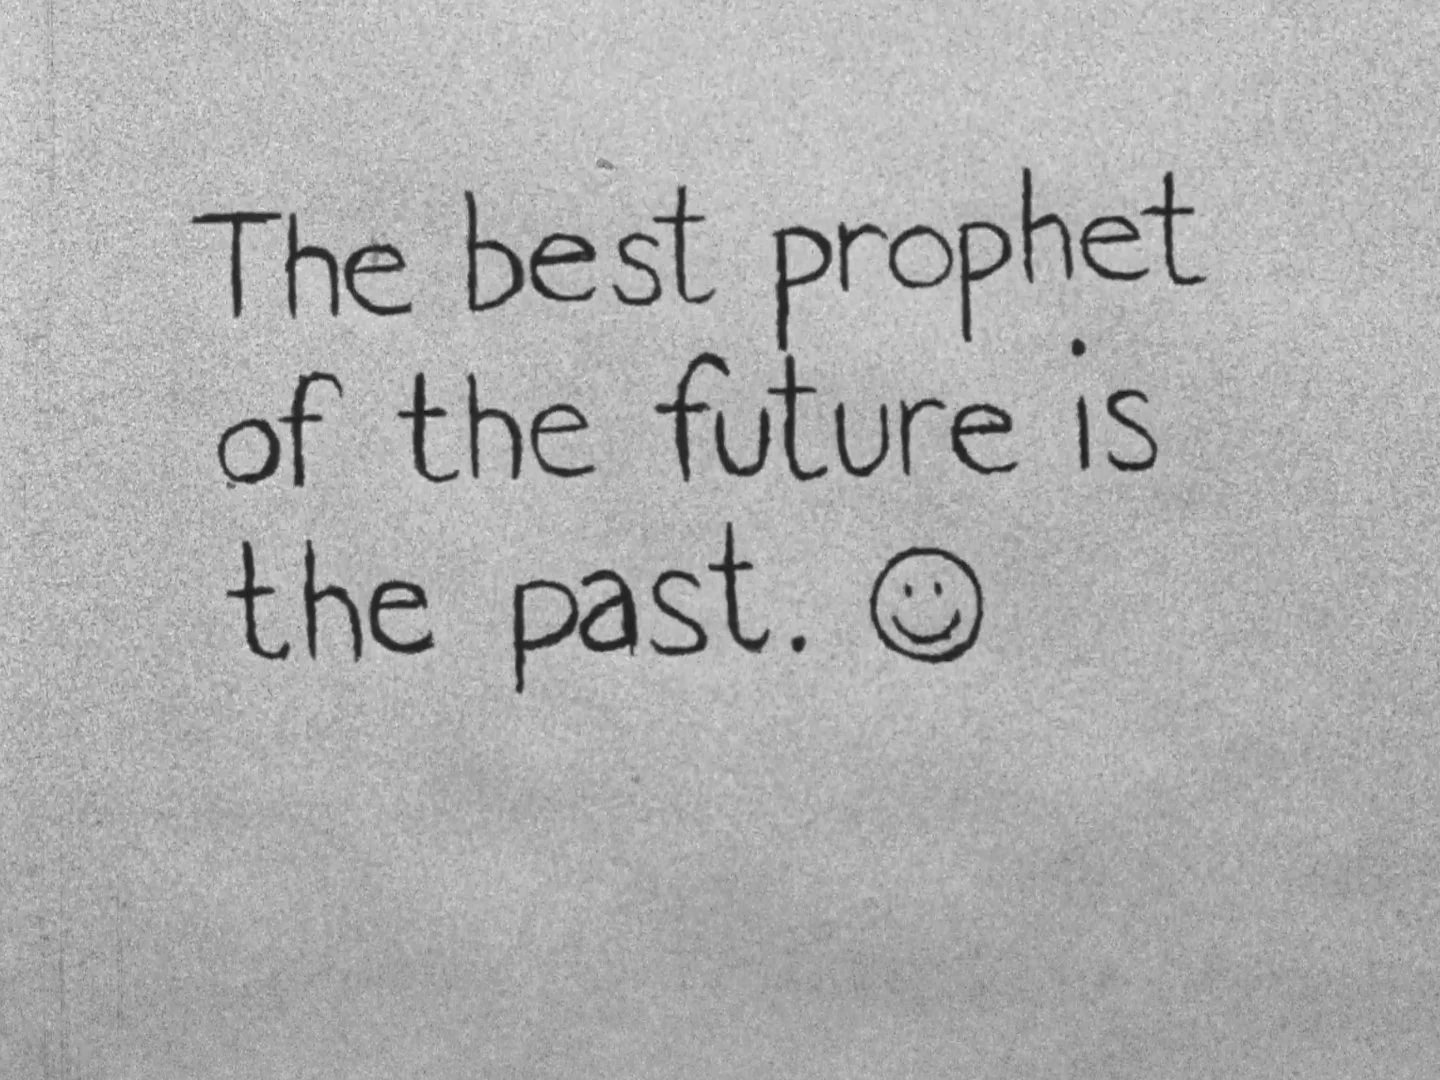 The best prophet
of the future is
the past. ☺